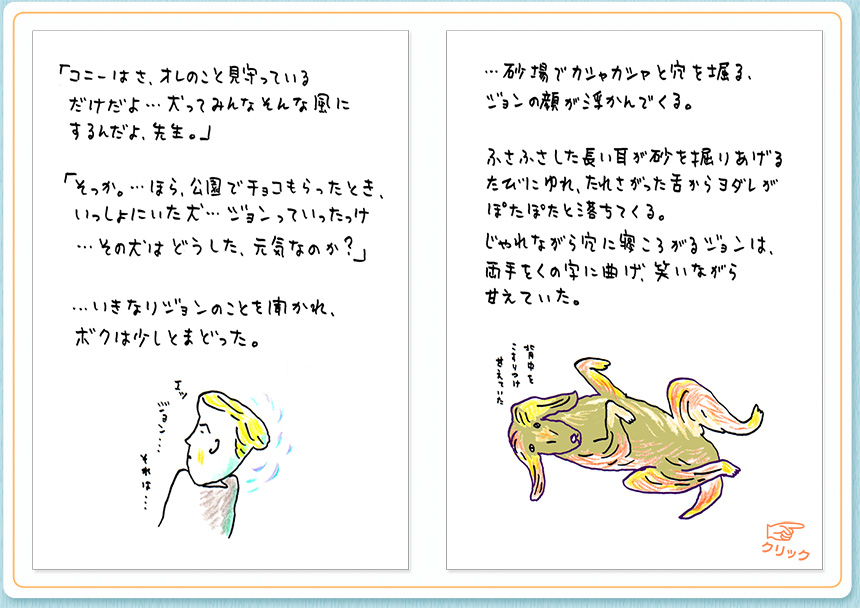 「コニーはさ、オレのこと見守っている
だけだよ…犬ってみんなそんな風に
するんだよ、先生。」
「そっか。…ほら、公園でチョコもらったとき、
いっしょにいた犬…ジョンっていったっけ
…その犬はどうした、元気なのか？」
…いきなりジョンのことを聞かれ、
ボクは少しとまどった。
エッ
ジョン…
それは…
…砂場でカシャカシャと穴を堀る、
ジョンの顔が浮かんでくる。
ふさふさした長い耳が砂を掘りあげる
たびにゆれ、たれさがった舌からヨダレが
ぽたぽたと落ちてくる。
じゃれながら穴に寝ころがるジョンは、
両手をくの字に曲げ、笑いながら
甘えていた。
背中を
こすりつけ
甘えていた
クリック